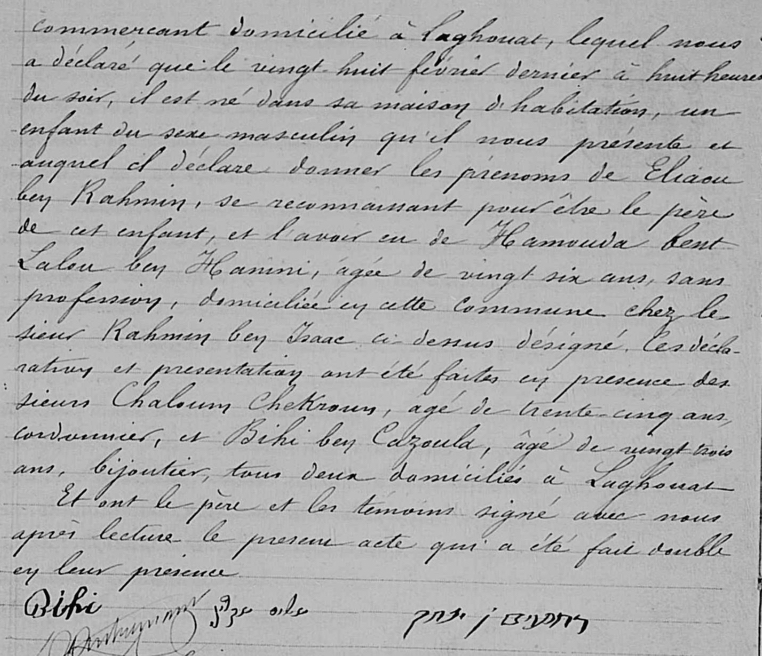 commercant domicilié à Laghouat, lequel nous
a déclaré que le vingt-huit février dernier à huit heures
du soir, il est né dans sa maison d'habitation, un
enfant du sexe masculin qu'il nous présente et
auquel il déclare donner les prénoms de Eliaou
ben Rahmin, se reconnaissant pour être le père
de cet enfant, et l'avoir eu de Hamouda bent
Lalou ben Hanini, âgée de vingt six ans, sans
profession, domiciliée en cette commune chez le
sieur Rahmin ben Isaac ci dessus désigné. Ces décla-
ration et presentation ont été faites en presence des
sieurs Chaloum Chekroun, agé de trente-cinq ans,
cordonnier, et Bihi ben Cazoula, âgé de vingt trois
ans, bijoutier, tous deux domiciliés à Laghouat
Et ont le père et les témoins signé avec nous
après lecture le present acte qui a été fait double
en leur présence
Bihi